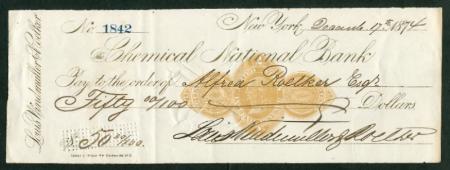 Louis Windmuller & Roelker
No. 1842
New York, Decembr 17th 1874
The Chemical National Bank
Pay to the order of Alfred Roelker Esqr
Fifty 00/100 Dollars
$ 50 00/100.
Louis Windmuller & Roelker